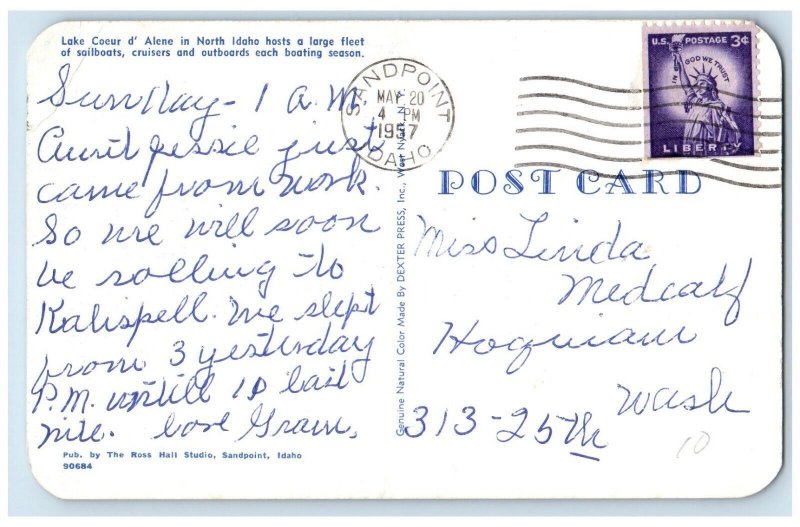 Lake Coeur d' Alene in North Idaho hosts a large fleet
of sailboats, cruisers and outboards each boating season.
Sunday - 1 a.M.
Aunt Jessie just
came from work.
So we will soon
be rolling to
Kalispell. We slept
from 3 yesterday
P.M. untill 10 last
nite. Love Gram.
Pub. by The Ross Hall Studio, Sandpoint, Idaho
90684
Genuine Natural Color Made By DEXTER PRESS, Inc., West Nyack, N.Y.
SANDPOINT
MAY 20
4 PM
1957
IDAHO
U.S. POSTAGE 3¢
IN GOD WE TRUST
LIBERTY
POST CARD
Miss Linda
Medcalf
Hoquiam
Wash
313-25th
10